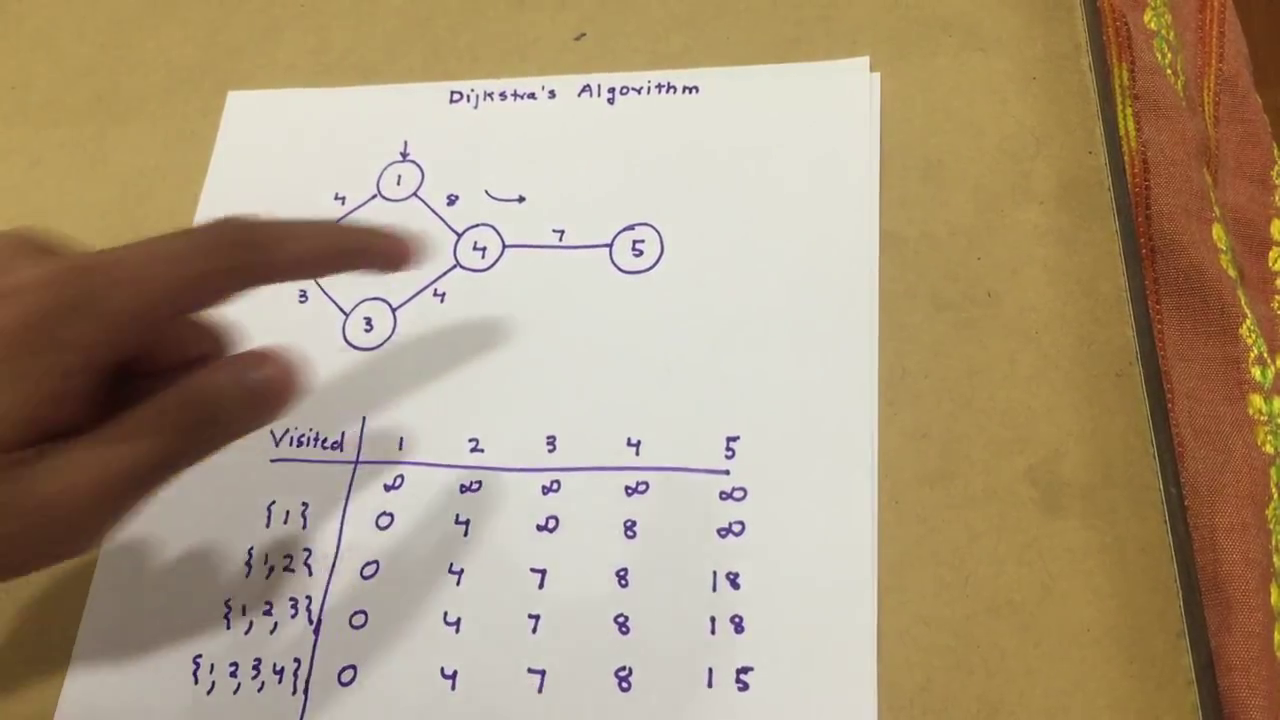 Dijkstra's Algorithm
1
4 8
4 7 5
3 4
3
Visited 1 2 3 4 5
∞ ∞ ∞ ∞ ∞
{1} 0 4 ∞ 8 ∞
{1,2} 0 4 7 8 18
{1,2,3} 0 4 7 8 18
{1,2,3,4} 0 4 7 8 15